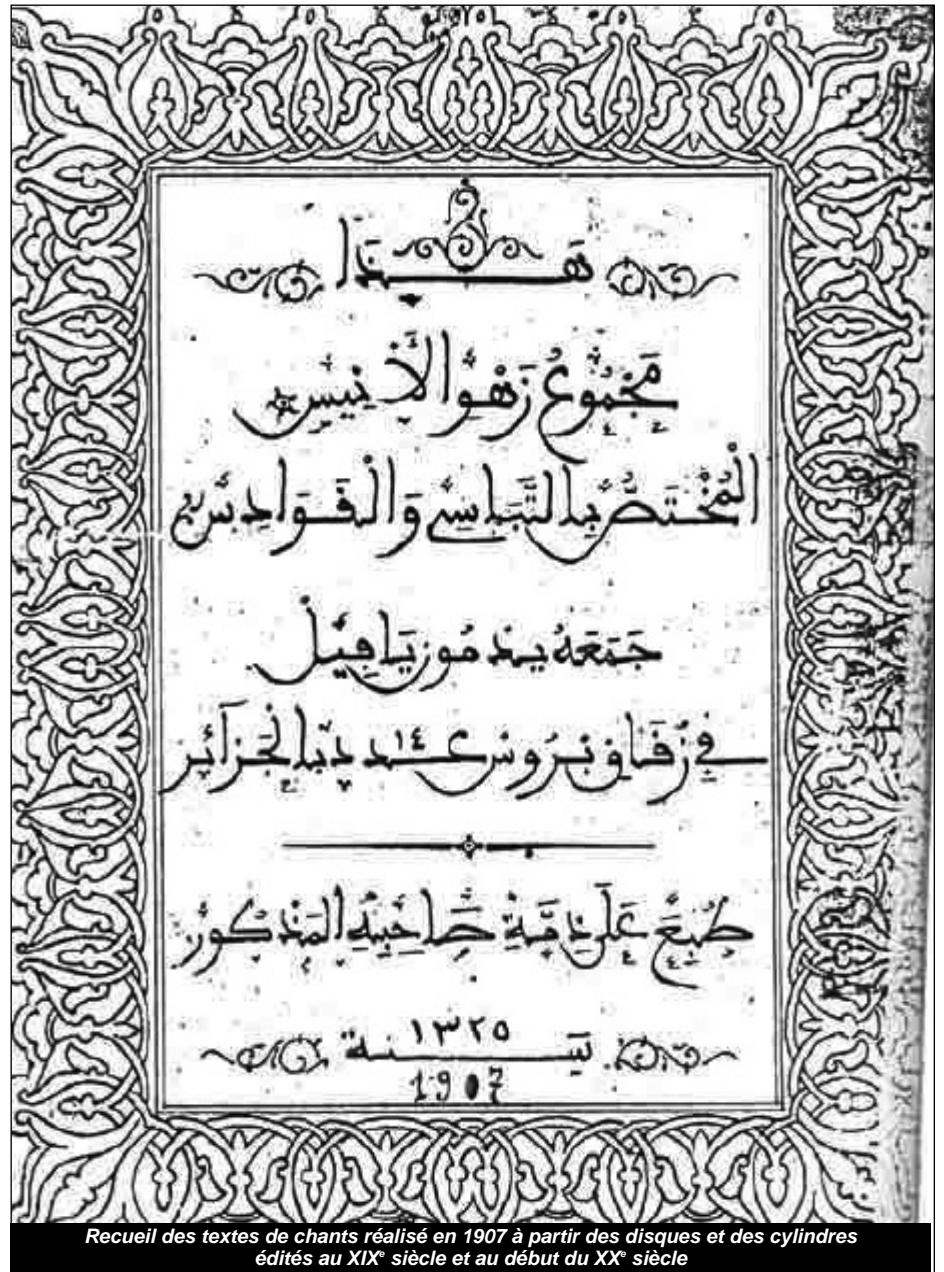 هَـــذَا
مَجْمُوعُ زَهْوُ الْأَنِيسِ
الْمُخْتَصُّ بِالتَّبَاسِي وَالْقَوَادِيسِ
جَمَعَهُ يـدمون يَافِيل
فِي زُقَاقِ بْرُوسْ عــدد ١٤ بِالْجَزَآئِر
طُبِعَ عَلَى ذِمَّةِ صَاحِبِهِ الْمَذْكُورِ
سَـنة ١٣٢٥
1907
Recueil des textes de chants réalisé en 1907 à partir des disques et des cylindres
édités au XIXe siècle et au début du XXe siècle